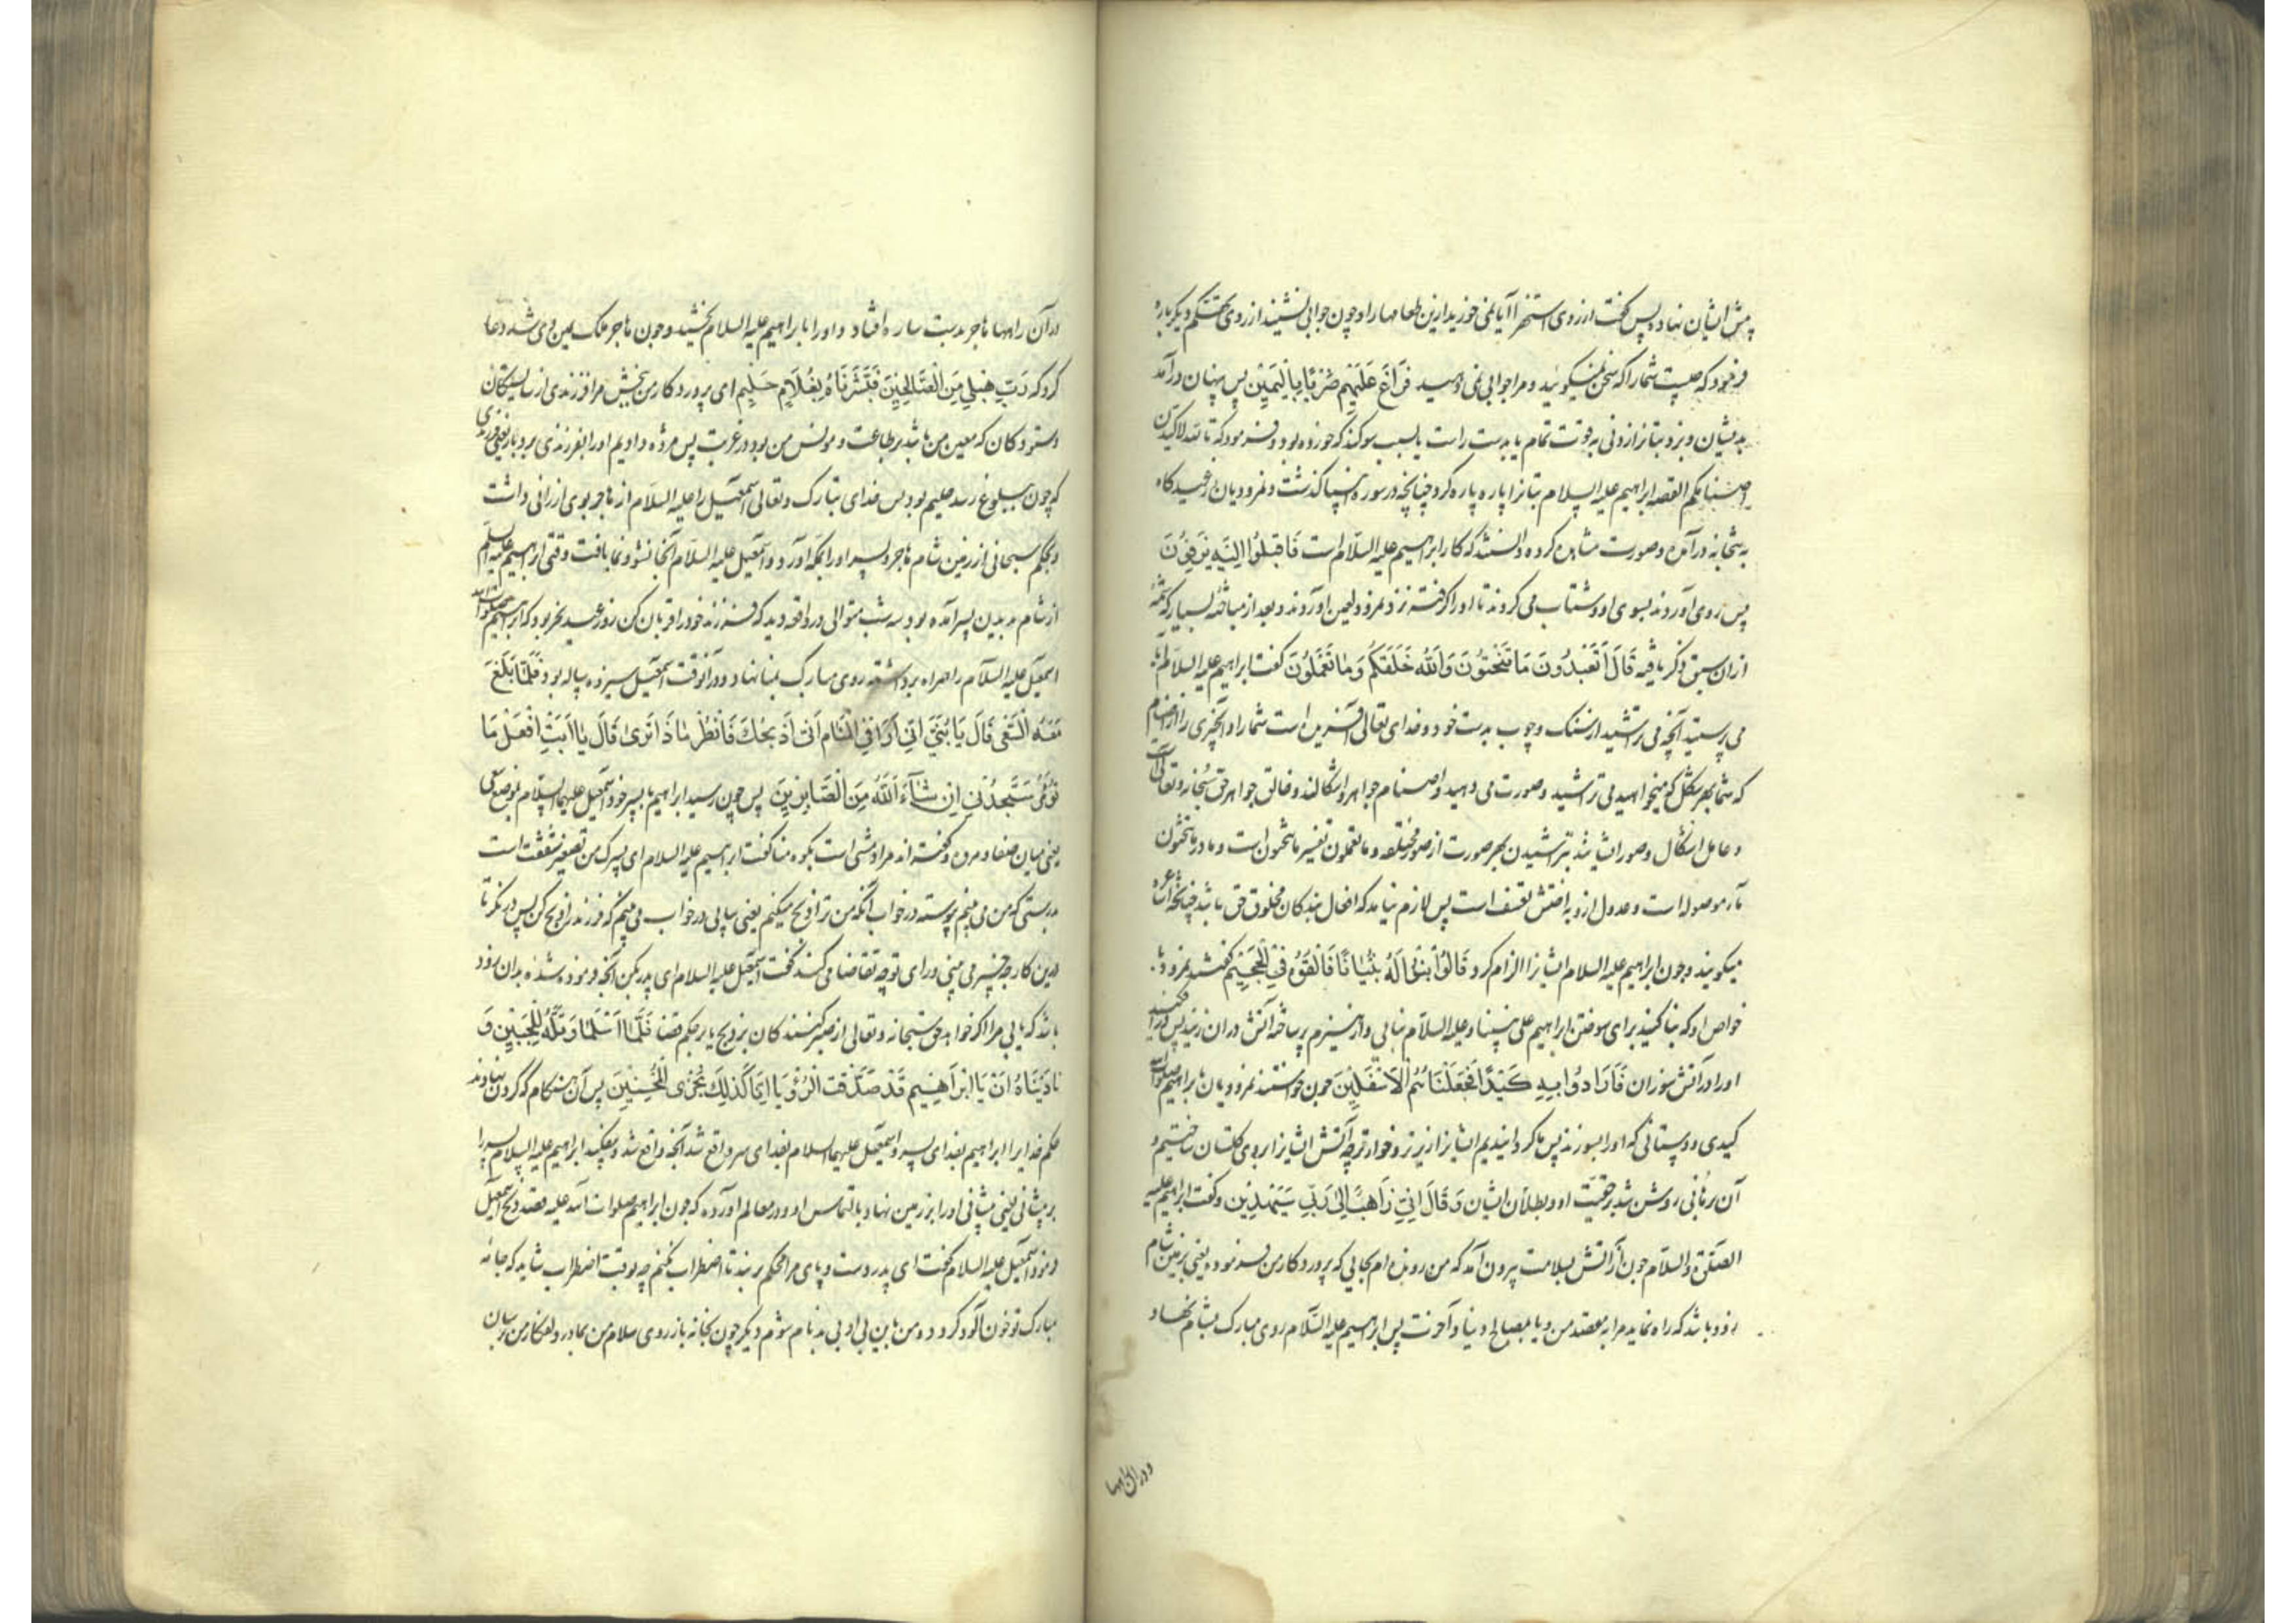 پیش ایشان نهاده پس گفت از روی استهزا آیا نمی خورید ازین طعامها را و چون جوابی نشنید از روی تحکم دیگر باره
فرمود که چیست شما را که سخن نمیگوئید و مرا جوابی نمی دهید فَرَاغَ عَلَيْهِمْ ضَرْبًا بِالْيَمِينِ پس پنهان درآمد
بدیشان و بزد بتانرا زدنی به قوت تمام یا بدست راست یا بسبب سوگند که خورده بود و فرموده که تالله لاکیدن
اصنامکم القصه ابراهیم علیه السلام بتانرا پاره پاره کرد چنانچه در سوره انبیا گذشت و نمرودیان از عیدگاه
به بتخانه درآمده و صورت مشاهده کرده دانستند که کار ابراهیم علیه السلام است فَاَقْبَلُوا اِلَيْهِ يَزِفُّونَ
پس روی آوردند بسوی او و شتاب می کردند تا او را گرفته نزد نمرود لعین آوردند و بعد از مباحثه بسیار که شمه
ازان سبق ذکر یافته قَالَ اَتَعْبُدُونَ مَا تَنْحِتُونَ وَاللّٰهُ خَلَقَكُمْ وَمَا تَعْمَلُونَ گفت ابراهیم علیه السلام آیا
می پرستید آنچه می تراشید از سنک و چوب بدست خود و خدای تعالی آفریده است شما را و آنچیزی را از اصنام
که شما بهر شکل که میخواهید می تراشید و صورت می دهید و اصنام جواهر و اشکالند و خالق جواهر حق سبحانه و تعالی است
و عامل اشکال و صور ایشانند بتراشیدن بهر صورت از صور مختلفه و ما تعملون تفسیر ما تنحتون است و ما در ما تنحتون
ما موصوله است و عدول ازو به اختش تعسف است پس لازم نیاید که افعال بندکان مخلوق حق باشد چنانچه اشاعره
میکویند و چون ابراهیم علیه السلام ایشانرا الزام کرد قَالُوا ابْنُوا لَهُ بُنْيَانًا فَاَلْقُوهُ فِي الْجَحِيمِ گفتند نمرود با
خواص او که بنا کنید برای سوختن ابراهیم علی نبینا و علیه السلام بنایی و از هیزم پر ساخته آتش دران زنید پس درافکنید
او را در آتش سوزان فَاَرَادُوا بِهِ كَيْدًا فَجَعَلْنَاهُمُ الْاَسْفَلِينَ چون خواستند نمرودیان بابراهیم صلوات الله
کیدی و دستانی که او را بسوزند پس ما کردانیدیم ایشانرا زیرتر و خوارتر چه آتش ایشانرا بروی گلستان ساختیم و
آن برهانی روشن شد بر حقیت او و بطلان ایشان وَقَالَ اِنِّي ذَاهِبٌ اِلٰى رَبِّي سَيَهْدِينِ و گفت ابراهیم علیه
الصلوة والسلام چون از آتش بسلامت بیرون آمد که من رونده ام بجایی که پروردکار من فرموده یعنی بزمین شام
زود باشد که راه نماید مرا به مقصد من و یا بمصالح دنیا و آخرت پس ابراهیم علیه السلام روی مبارک بشام نهاد
و در ان راهها
در آن راهها هاجر بدست ساره افتاد و او را بابراهیم علیه السلام بخشید و چون هاجر ملک یمین وی شد دعا
کرد که رَبِّ هَبْ لِي مِنَ الصَّالِحِينَ فَبَشَّرْنَاهُ بِغُلَامٍ حَلِيمٍ ای پروردکار من ببخش مرا فرزندی از شایستکان
و ستودکان که معین من باشد بر طاعت و مونس من بود در غربت پس مژده دادیم او را بفرزندی بردبار یعنی فرزندی
که چون ببلوغ رسد حلیم بود پس خدای تبارک و تعالی اسمعیل را علیه السلام از هاجر بوی ارزانی داشت
و بحکم سبحانی از زمین شام هاجر و پسر او را بمکه آورد و اسمعیل علیه السلام آنجا نشو و نما یافت وقتی ابراهیم علیه السلم
از شام بدیدن پسر آمده بود سه شب متوالی در واقعه دید که فرزند خود را قربان کن روز عید نحر بود که ابراهیم صلوات الله
اسمعیل علیه السلام را همراه برداشته روی مبارک بمنا نهاد و در آنوقت اسمعیل سیزده ساله بود فَلَمَّا بَلَغَ
مَعَهُ السَّعْيَ قَالَ يَا بُنَيَّ اِنِّي اَرٰى فِي الْمَنَامِ اَنِّي اَذْبَحُكَ فَانْظُرْ مَاذَا تَرٰى قَالَ يَا اَبَتِ افْعَلْ مَا
تُؤْمَرُ سَتَجِدُنِي اِنْ شَاءَ اللّٰهُ مِنَ الصَّابِرِينَ پس چون رسید ابراهیم با پسر خود اسمعیل علیهما السلام بموضع سعی
یعنی میان صفا و مروه و گفته اند مراد مشی است بکوه منا گفت ابراهیم علیه السلام ای پسرک من تصغیر شفقت است
بدرستی که من می بینم پیوسته در خواب آنکه من ترا ذبح میکنم یعنی پیاپی در خواب می بینم که فرزند را ذبح کن پس در نکر تا
درین کار چه چیز می بینی و رای تو چه تقاضا می کند گفت اسمعیل علیه السلام ای پدر بکن آنچه فرموده شده بدان زود
باشد که یابی مرا اگر خواهد حق سبحانه و تعالی از صبر کنندکان بر ذبح یا بر حکم قضا فَلَمَّا اَسْلَمَا وَتَلَّهُ لِلْجَبِينِ وَ
نَادَيْنَاهُ اَنْ يَا اِبْرٰهِيمُ قَدْ صَدَّقْتَ الرُّؤْيَا اِنَّا كَذٰلِكَ نَجْزِي الْمُحْسِنِينَ پس آن هنکام که کردن نهادند
حکم خدایرا ابراهیم بفدای پسر و اسمعیل علیهما السلام بفدای سر واقع شد آنچه واقع شد و بیفکند ابراهیم علیه السلام پسر را
بر پیشانی یعنی پیشانی او را بر زمین نهاد بالتماس او و در معالم آورده که چون ابراهیم صلوات الله علیه قصد ذبح اسمعیل
فرمود اسمعیل علیه السلام گفت ای پدر دست و پای مرا محکم بر بند تا اضطراب نکنم چه بوقت اضطراب شاید که جامه
مبارک تو خون آلود کردد و من باین بی ادبی بدنام شوم دیکر چون بخانه باز روی سلام من بمادر دلفکار من برسان